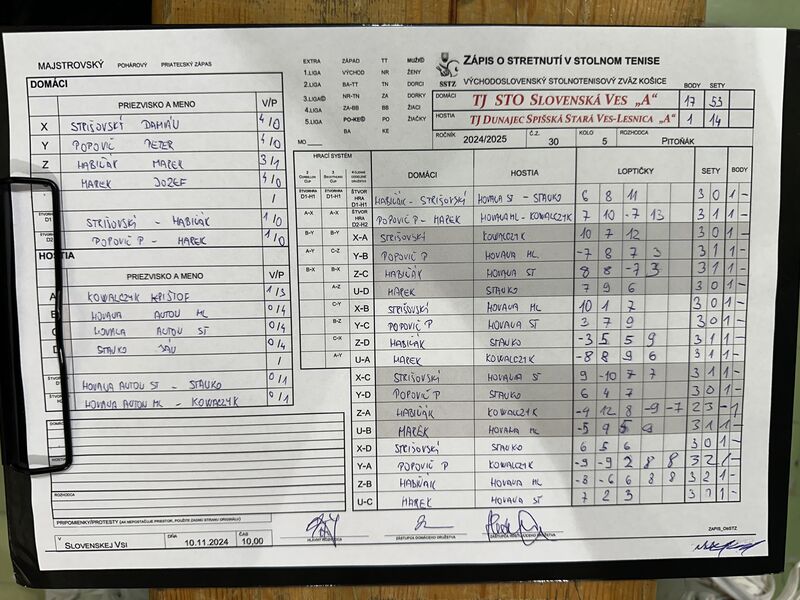 MAJSTROVSKÝ POHÁROVÝ PRIATEĽSKÝ ZÁPAS
DOMÁCI
PRIEZVISKO A MENO V/P
X STRIŠOVSKÝ DAMIÁN 4/0
Y POPOVIČ PETER 4/0
Z HABIŇÁK MAREK 3/1
MAREK JOZEF 4/0
/
ŠTVORHRA D1 STRIŠOVSKÝ - HABIŇÁK 1/0
D2 POPOVIČ P - MAREK 1/0
HOSTIA
PRIEZVISKO A MENO V/P
A KOWALCZYK KRIŠTOF 1/3
HOVAŇA ANTON ML 0/4
HOVAŇA ANTON ST 0/4
STAŇKO JÁN 0/4
/
HOVAŇA ANTON ST - STAŇKO 0/1
HOVAŇA ANTON ML - KOWALCZYK 0/1
ROZHODCA
PRIPOMIENKY/PROTESTY (AK NEPOSTAČUJE PRIESTOR, POUŽITE ZADNÚ STRANU ORIGINÁLU)
V SLOVENSKEJ VSI DŇA 10.11.2024 ČAS 10,00
HLAVNÝ ROZHODCA ZÁSTUPCA DOMÁCEHO DRUŽSTVA ZÁSTUPCA HOSŤUJÚCEHO DRUŽSTVA
EXTRA ZÁPAD TT MUŽI
1.LIGA VÝCHOD NR ŽENY
2.LIGA BA-TT TN DORCI
3.LIGA NR-TN ZA DORKY
4.LIGA ZA-BB BB ŽIACI
5.LIGA PO-KE PO ŽIAČKY
BA KE
MO
SSTZ
ZÁPIS O STRETNUTÍ V STOLNOM TENISE
VÝCHODOSLOVENSKÝ STOLNOTENISOVÝ ZVÄZ KOŠICE
BODY SETY
DOMÁCI TJ STO SLOVENSKÁ VES „A" 17 53
HOSTIA TJ DUNAJEC SPIŠSKÁ STARÁ VES-LESNICA „A" 1 14
ROČNÍK 2024/2025 Č.Z. 30 KOLO 5 ROZHODCA PITOŇÁK
HRACÍ SYSTÉM DOMÁCI HOSTIA LOPTIČKY SETY BODY
ŠTVORHRA D1-H1 ŠTVORHRA D1-H1 ŠTVORHRA D1-H1 HABIŇÁK - STRIŠOVSKÝ HOVAŇA ST - STAŇKO 6 8 11 3 0 1 -
A-X A-X ŠTVORHRA D2-H2 POPOVIČ P - MAREK HOVAŇA ML - KOWALCZYK 7 10 -7 13 3 1 1 -
B-Y B-Y X-A STRIŠOVSKÝ KOWALCZYK 10 7 12 3 0 1 -
A-Y C-Z Y-B POPOVIČ P HOVAŇA ML -7 8 7 3 3 1 1 -
B-X B-X Z-C HABIŇÁK HOVAŇA ST 8 8 -7 3 3 1 1 -
A-Z U-D MAREK STAŇKO 7 9 6 3 0 1 -
C-Y X-B STRIŠOVSKÝ HOVAŇA ML 10 1 7 3 0 1 -
B-Z Y-C POPOVIČ P HOVAŇA ST 3 7 9 3 0 1 -
C-X Z-D HABIŇÁK STAŇKO -3 5 5 9 3 1 1 -
A-Y U-A MAREK KOWALCZYK -8 8 9 6 3 1 1 -
X-C STRIŠOVSKÝ HOVAŇA ST 9 -10 7 7 3 1 1 -
Y-D POPOVIČ P STAŇKO 6 4 7 3 0 1 -
Z-A HABIŇÁK KOWALCZYK -4 12 8 -9 -7 2 3 - 1
U-B MAREK HOVAŇA ML -5 9 5 9 3 1 1 -
X-D STRIŠOVSKÝ STAŇKO 6 5 6 3 0 1 -
Y-A POPOVIČ P KOWALCZYK -9 -9 2 8 8 3 2 1 -
Z-B HABIŇÁK HOVAŇA ML -8 -6 6 8 8 3 2 1 -
U-C MAREK HOVAŇA ST 7 2 3 3 1 -
ZAPIS_OSTZ